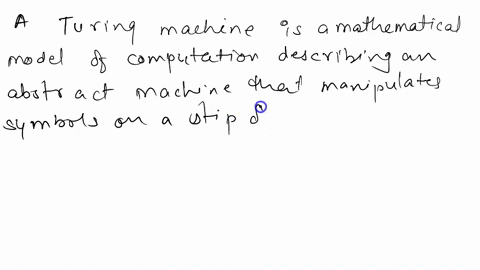 A Turing machine is a mathematical
model of computation describing an
abstract machine that manipulates
symbols on a stip